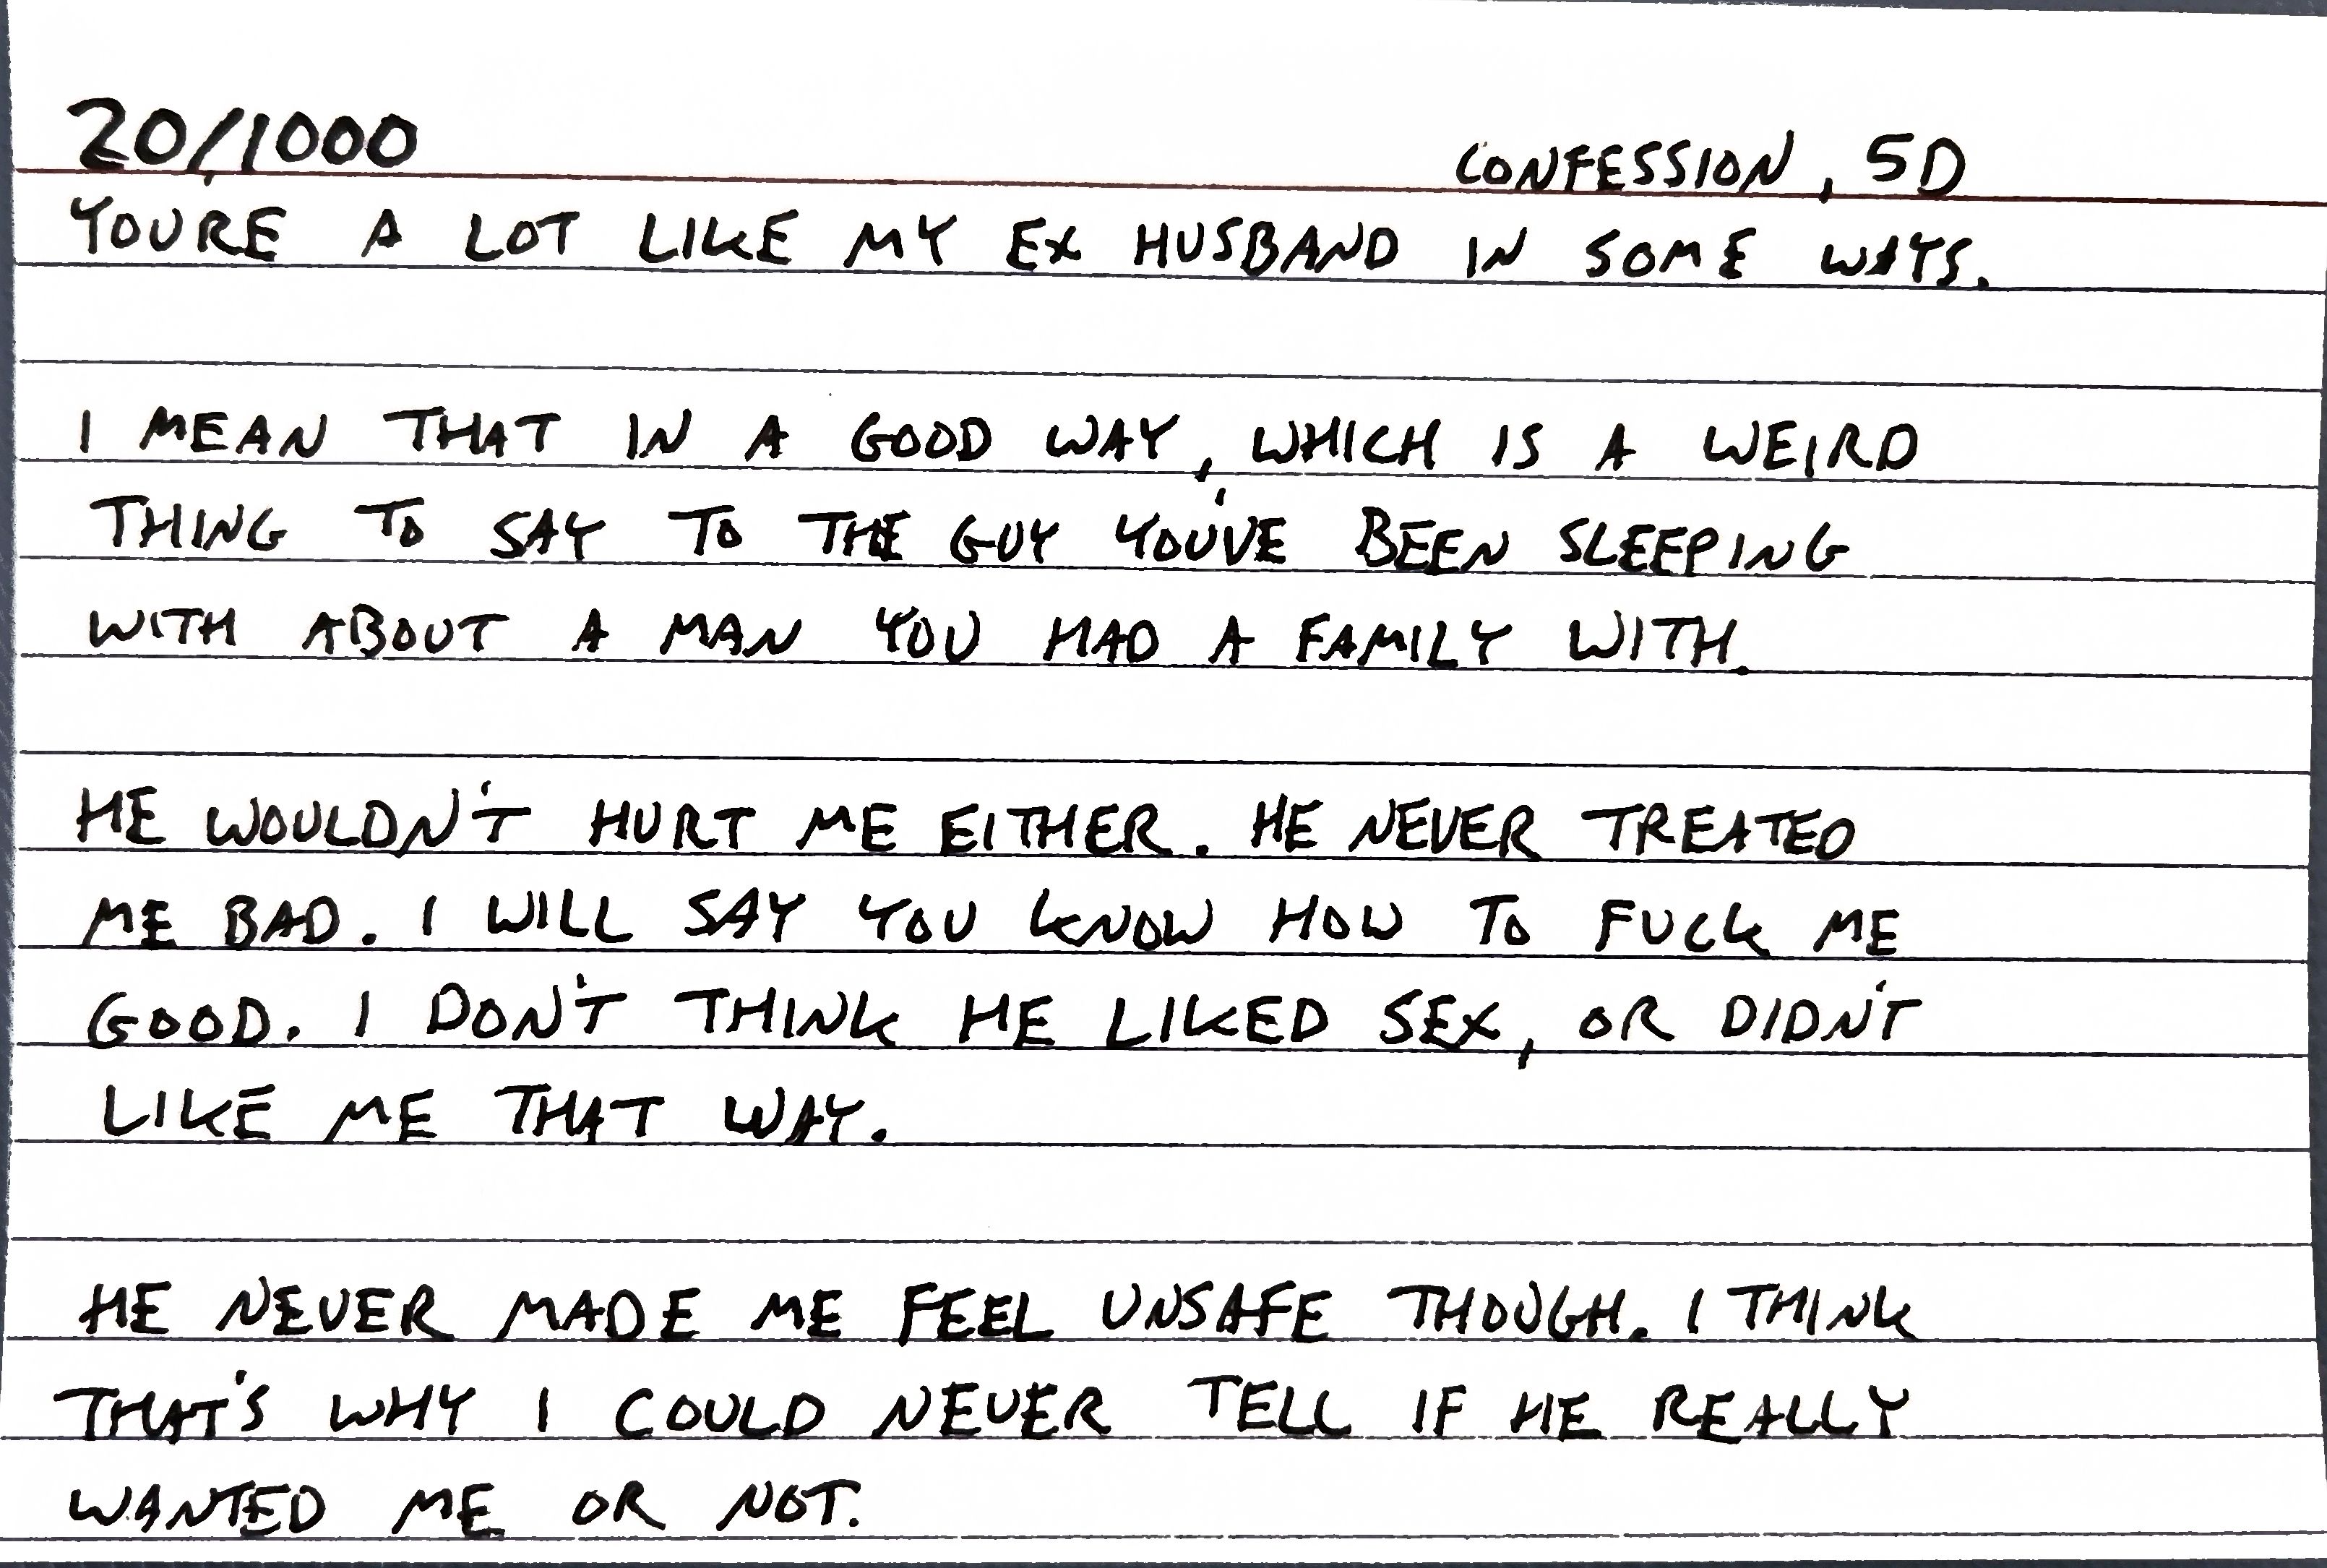 20/1000
CONFESSION, 5D
YOU'RE A LOT LIKE MY EX HUSBAND IN SOME WAYS.
I MEAN THAT IN A GOOD WAY, WHICH IS A WEIRD
THING TO SAY TO THE GUY YOU'VE BEEN SLEEPING
WITH ABOUT A MAN YOU HAD A FAMILY WITH.
HE WOULDN'T HURT ME EITHER. HE NEVER TREATED
ME BAD. I WILL SAY YOU KNOW HOW TO FUCK ME
GOOD. I DON'T THINK HE LIKED SEX, OR DIDN'T
LIKE ME THAT WAY.
HE NEVER MADE ME FEEL UNSAFE THOUGH. I THINK
THAT'S WHY I COULD NEVER TELL IF HE REALLY
WANTED ME OR NOT.